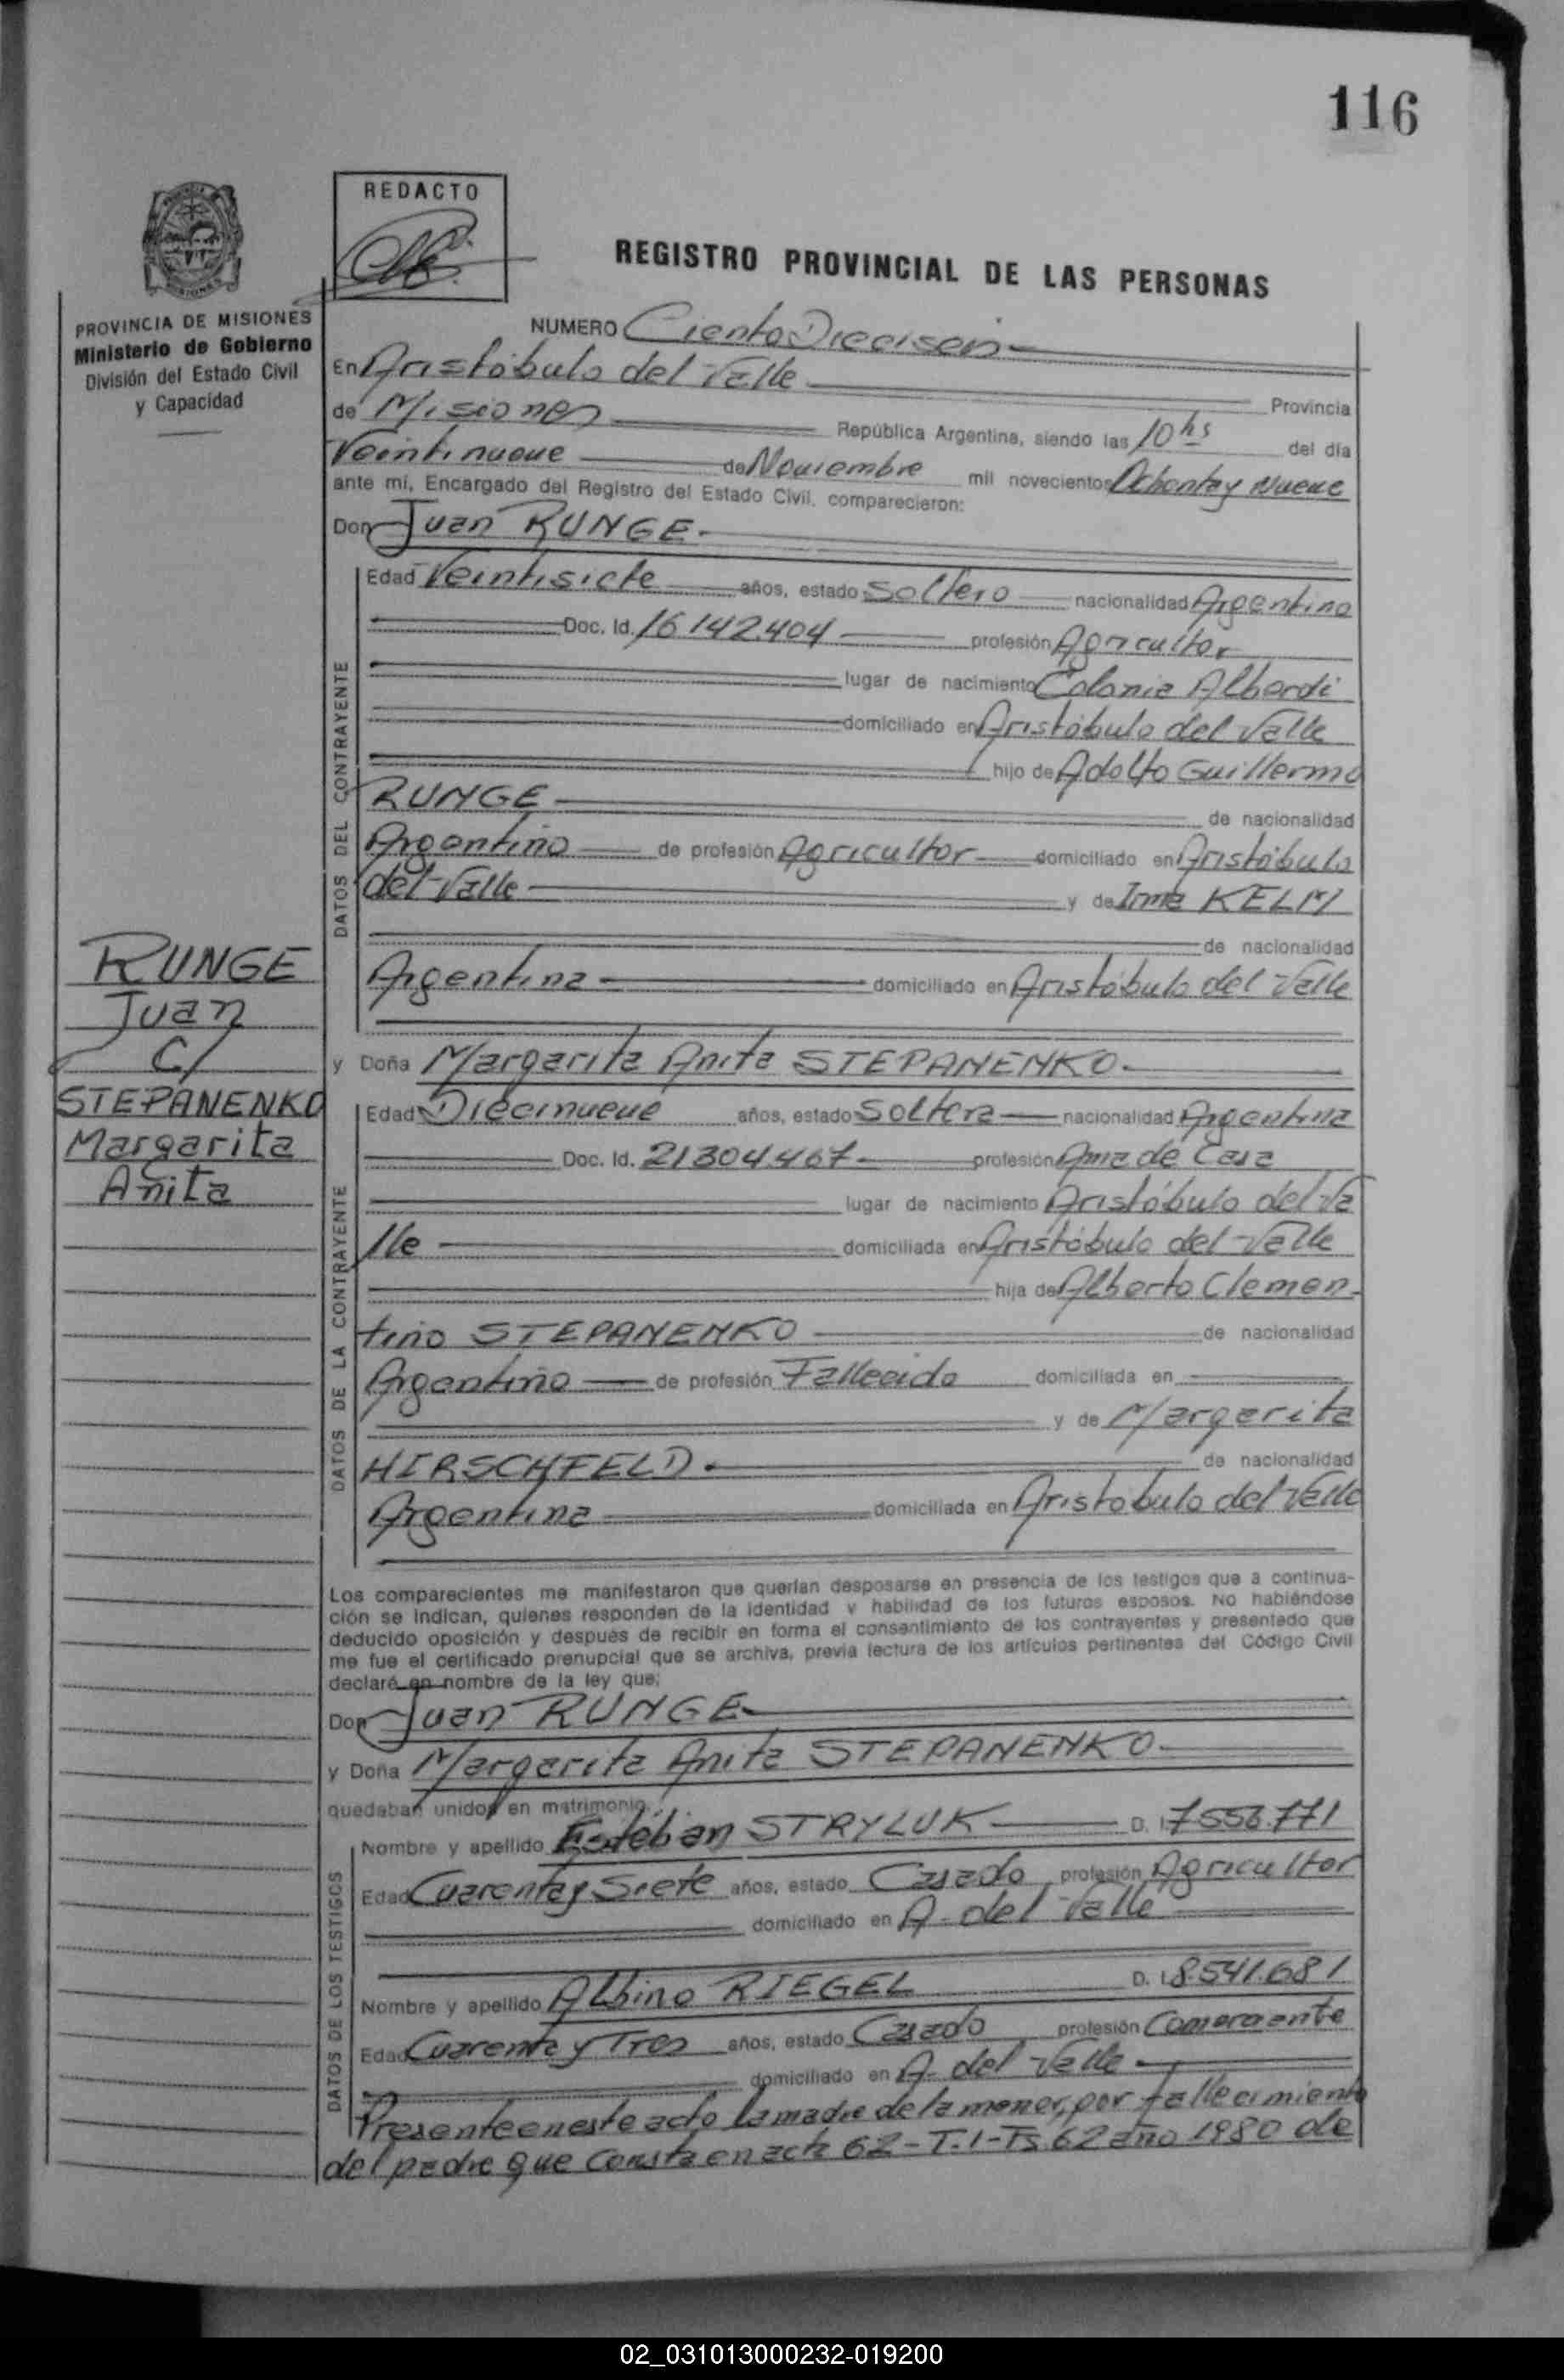 116
REDACTO
REGISTRO PROVINCIAL DE LAS PERSONAS
PROVINCIA DE MISIONES
Ministerio de Gobierno
División del Estado Civil
y Capacidad
NUMERO Ciento Dieciseis
En Aristóbulo del Valle
Provincia
de Misiones República Argentina, siendo las 10 hs del día
Veintinueve de Noviembre mil novecientos Ochenta y Nueve
ante mí, Encargado del Registro del Estado Civil, comparecieron:
Don Juan RUNGE.
DATOS DEL CONTRAYENTE
Edad Veintisiete años, estado Soltero nacionalidad Argentino
Doc. Id. 16142.404 profesión Agricultor
lugar de nacimiento Colonia Alberdi
domiciliado en Aristóbulo del Valle
hijo de Adolfo Guillermo
RUNGE de nacionalidad
Argentino de profesión Agricultor domiciliado en Aristóbulo
del Valle y de Irma KELM
de nacionalidad
Argentina domiciliado en Aristóbulo del Valle
RUNGE
Juan
C/
STEPANENKO
Margarita
Anita
y Doña Margarita Anita STEPANENKO.
DATOS DE LA CONTRAYENTE
Edad Diecinueve años, estado Soltera nacionalidad Argentina
Doc. Id. 21304.467. profesión Ama de Casa
lugar de nacimiento Aristóbulo del Va
lle domiciliada en Aristóbulo del Valle
hija de Alberto Clemen-
tino STEPANENKO de nacionalidad
Argentino de profesión Fallecido domiciliada en
y de Margarita
HIRSCHFELD. de nacionalidad
Argentina domiciliada en Aristobulo del Valle
Los comparecientes me manifestaron que querían desposarse en presencia de los testigos que a continua-
ción se indican, quienes responden de la identidad y habilidad de los futuros esposos. No habiéndose
deducido oposición y después de recibir en forma el consentimiento de los contrayentes y presentado que
me fue el certificado prenupcial que se archiva, previa lectura de los artículos pertinentes del Código Civil
declaré en nombre de la ley que:
Don Juan RUNGE
y Doña Margarita Anita STEPANENKO.
quedaban unidos en matrimonio.
DATOS DE LOS TESTIGOS
Nombre y apellido Esteban STRYLUK D. I. 7556.771
Edad Cuarenta y Siete años, estado Casado profesión Agricultor
domiciliado en A. del Valle
Nombre y apellido Albino RIEGEL D. I. 8.541.681
Edad Cuarenta y Tres años, estado Casado profesión Comerciante
domiciliado en A. del Valle
Presente en este acto la madre de la menor, por fallecimiento
del padre que consta en acta 62-T.1-Fs 62 año 1980 de
02_031013000232-019200